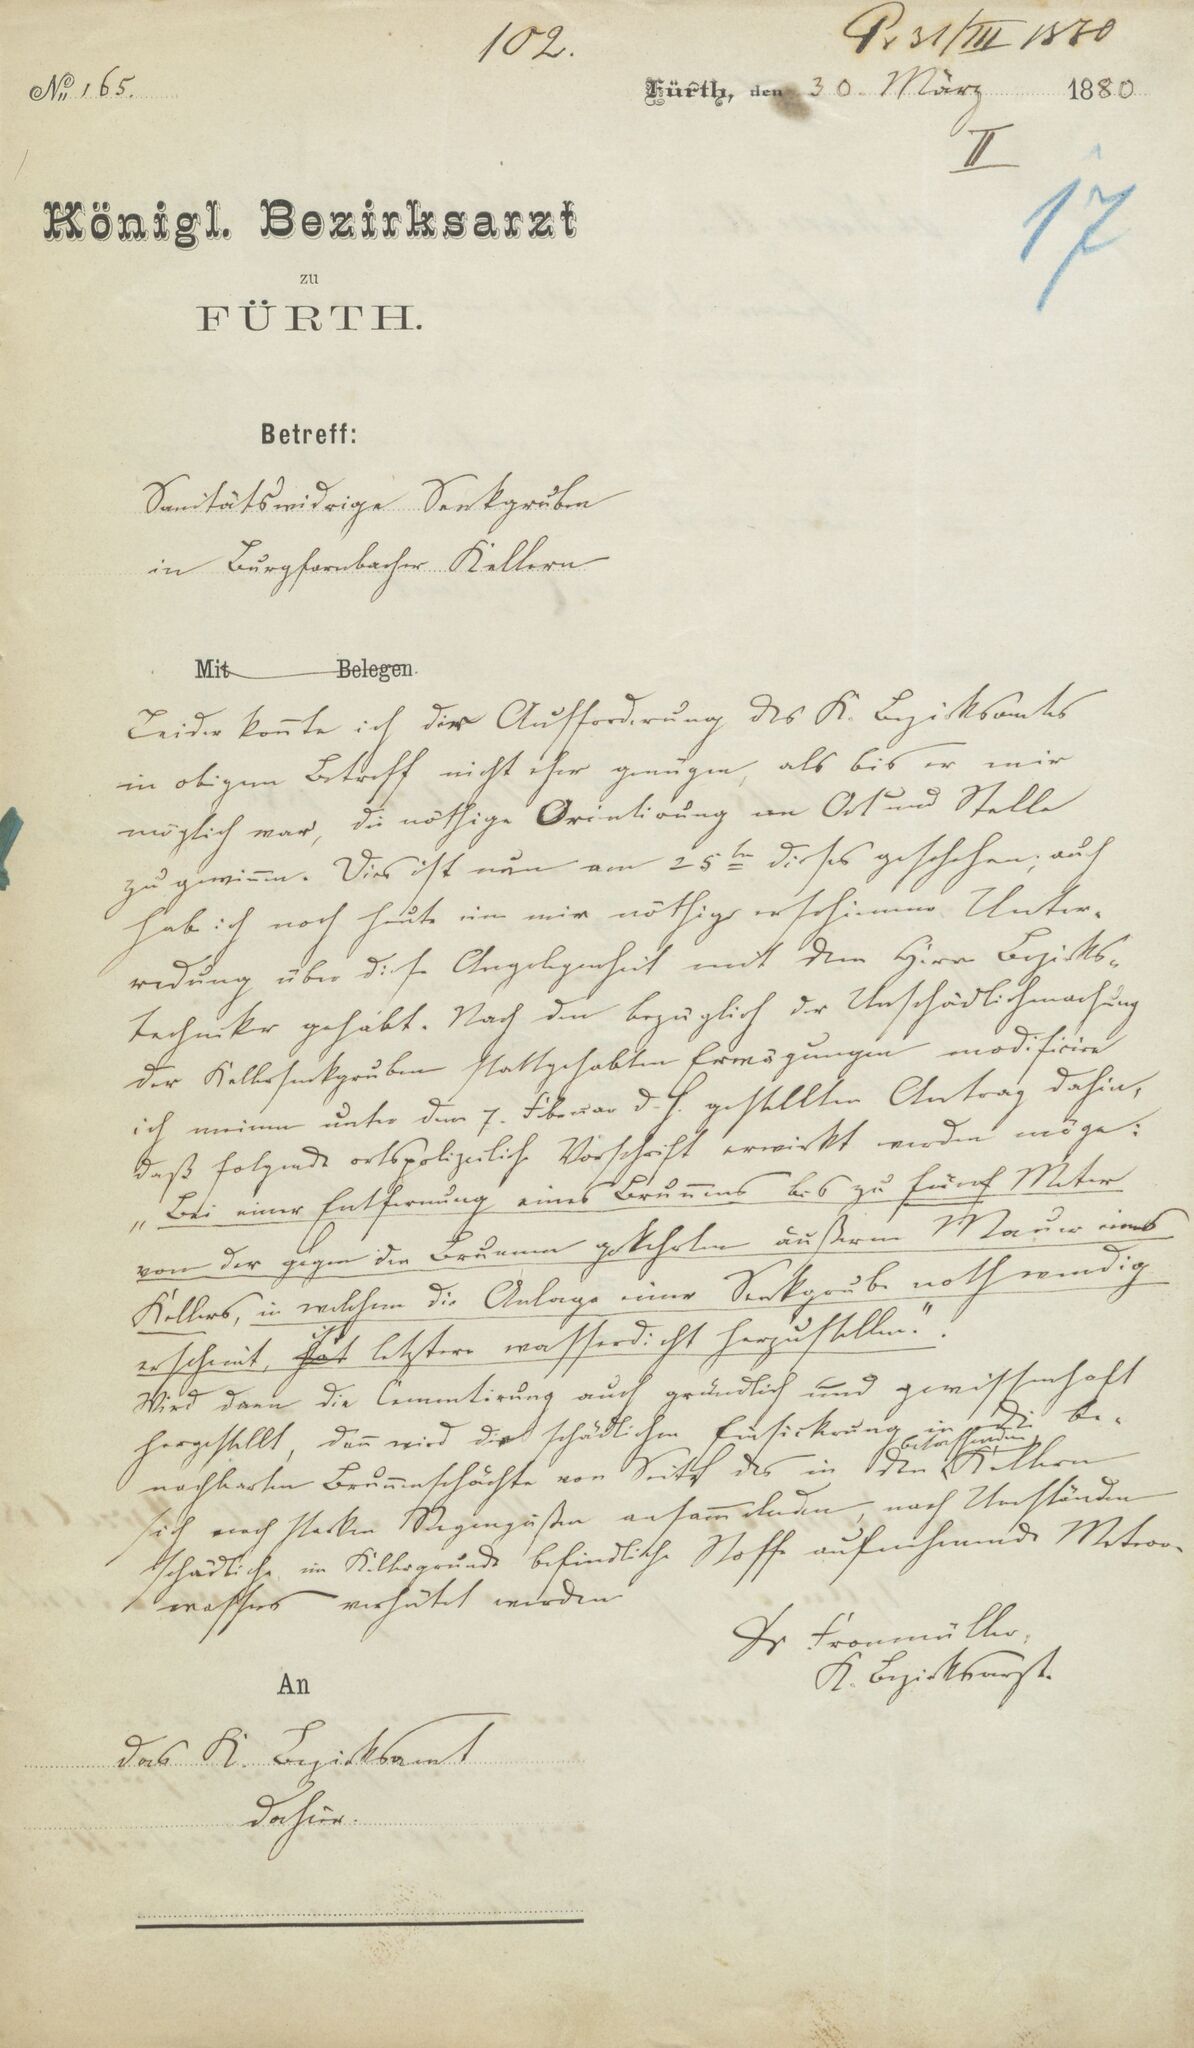 102.
Pr 31/III 1880
No 165.
Fürth, den 30. März 1880
II
17
Königl. Bezirksarzt
zu
FÜRTH.
Betreff:
Sanitätswidrige Senkgruben
in Burgfarnbacher Kellern
Mit Belegen.
Leider konnte ich der Aufforderung des K. Bezirksamtes
in obigem Betreff nicht eher genügen, als bis es mir
möglich war, die nöthige Orientirung an Ort und Stelle
zu gewinnen. Dies ist nun am 25ten dieses geschehen; auch
hab ich noch heute eine mir nöthig erschienene Unter-
redung über diese Angelegenheit mit dem Herrn Bezirks-
techniker gehabt. Nach den bezüglich der Unschädlichmachung
der Kellersenkgruben stattgehabten Erwägungen modificire
ich meinen unter dem 7. Februar d. J. gestellten Antrag dahin,
daß folgende ortspolizeiliche Vorschrift erwirkt werden möge:
„Bei einer Entfernung eines Brunnens bis zu fünf Meter
von der gegen den Brunnen gekehrten äußeren Mauer eines
Kellers, in welchem die Anlage einer Senkgrube nothwendig
erscheint, ist letztere wasserdicht herzustellen."
Wird dann die Cementirung auch gründlich und gewissenhaft
hergestellt, dann wird die schädliche Einsickerung in die be-
nachbarten Brunnenschächte von Seite des in den betreffenden Kellern
sich nach starken Regengüssen ansammelnden, nach Umständen
schädliche im Kellergrunde befindliche Stoffe aufnehmende Meteor-
wassers verhütet werden
Dr Fronmüller,
K. Bezirksarzt.
An
das K. Bezirksamt
dahier.